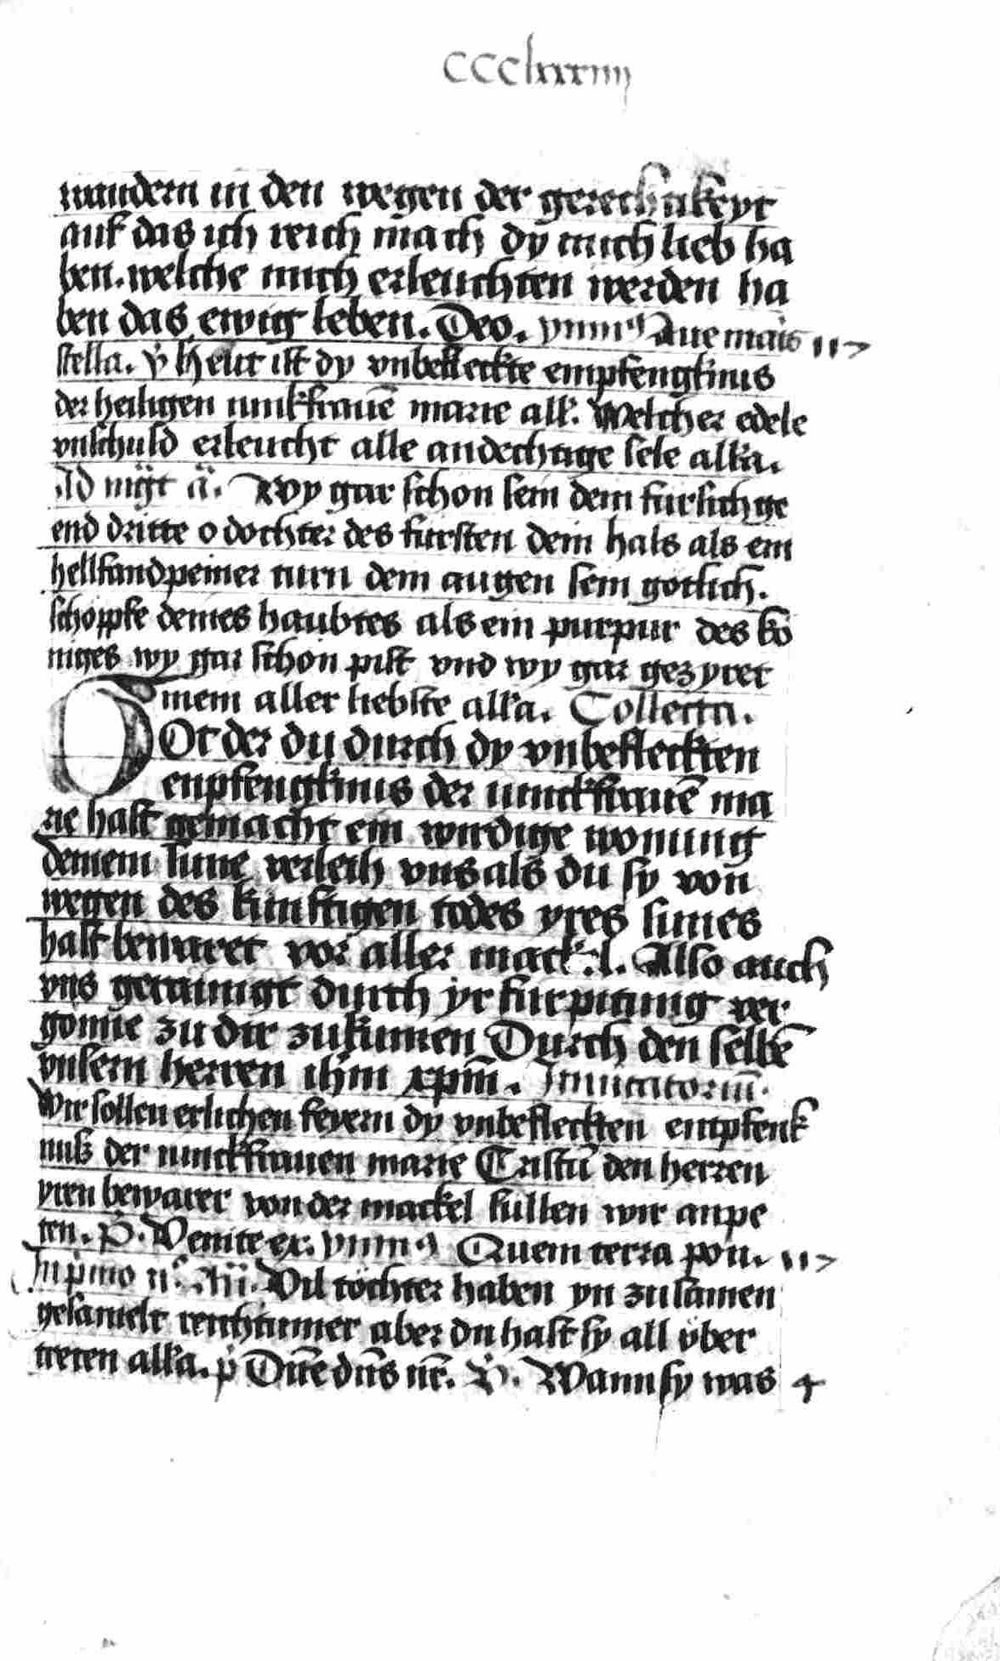 ccclxxxiiij
wandern in den wegen der gerechtikeyt
auf das ich reich mach dy mich lieb ha
ben. welche mich erleuchten werden ha
ben das ewig leben. Deo. ymnus Aue maris
stella. v̇ Heut ist dy vnbefleckte empfengknus
der heiligen iunkfrauē marie all'. Welcher edele
vnschuld erleucht alle andechtige sele all'a.
Ad mg̈t ä. Wy gar schon sein dein fursichge
end dritte o dochter des fursten dein hals als ein
hellfandpeiner turn dein augen sein gotlich.
schopfe deines haubtes als ein purpur des ko
niges wy gar schon pist vnd wy gar gezyret
mein aller liebste all'a. Collecta.
Got der du durch dy vnbefleckten
enpfengknus der iunckfrauē ma
rie hast gemacht ein wirdige wonung
deinem sune verleih vns als du sy von
wegen des kunftigen todes yres sunes
hast bewaret vor aller mackel. Also auch
vns geraingt durch yr furpitung ver
gonne zu dir zukumen Durch den selbē
vnsern herren ihm xpm̄. Inuitatoriū.
Wir sollen erlichen feyern dy vnbefleckten entpfenk
nuß der iunckfrauen marie Cristū den herren
yren bewarer von der mackel sullen wir anpe
ten. P̄. Venite ex. ymnus Quem terra pon.
In pmo nc. Añ. Vil töchter haben yn zusamen
gesamelt reichtumer aber du hast sy all vber
treten all'a. p̄ Dn̄e dn̄s nr̄. V̇. Wann sy was